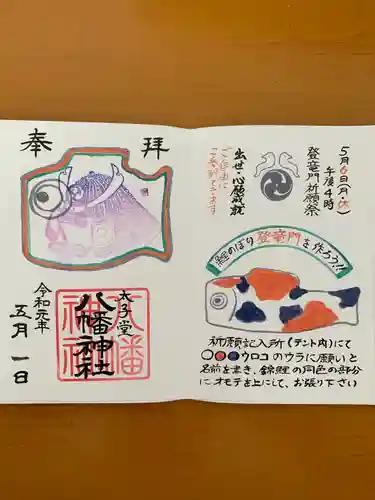 奉拝
太子堂
八幡神社
八幡神社
令和元年
五月一日
5月6日(月・休)
午後4時
登竜門祈願祭
出世・心願成就
ご自由に
ご参列下さいます
鯉のぼり登竜門を作ろう!!
祈願記入所(テント内)にて
○●●ウロコのウラに願いと
名前を書き、錦鯉の同色の部分
にオモテを上にして、お張り下さい